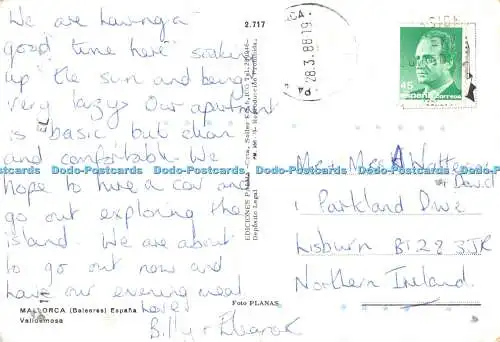 We are having a
good time here soaking
up the sun and being
very lazy. Our apartment
is basic but clean
and comfortable. We
hope to hire a car and
go out exploring the
island. We are about
to go out now and
have our evening meal
love
Billy +
MALLORCA (Baleares) España
Valldemosa
Foto PLANAS
2.717
EDICIONES
Depósito Legal
28.3.88 19
45
España correos
Mr & Mrs A
David
1 Parkland Drive
Lisburn BT28 3JR
Northern Ireland.
Dodo-Postcards Dodo-Postcards Dodo-Postcards Dodo-Postcards Dodo-Postcards Dodo-Postcards